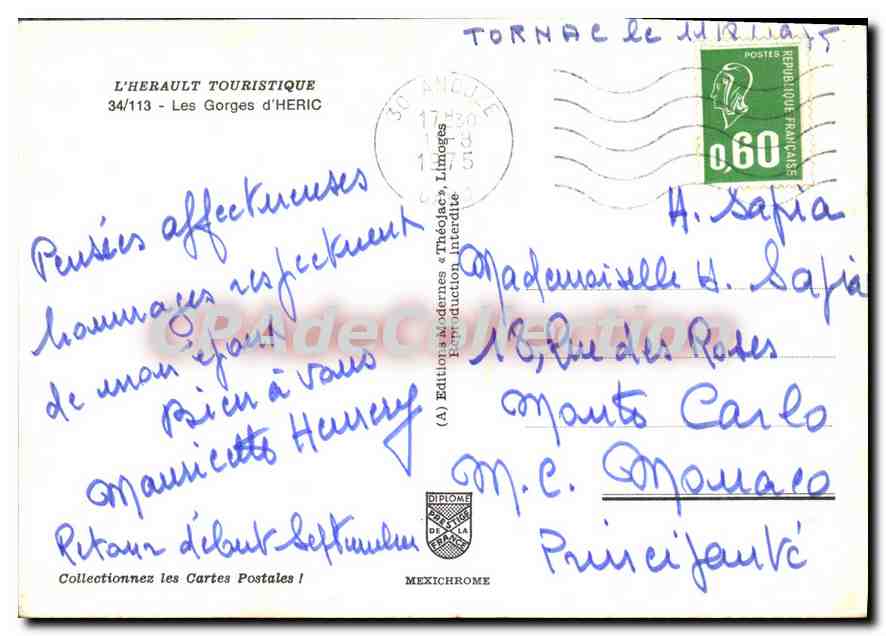 TORNAC le 11 8 1975
L'HERAULT TOURISTIQUE
34/113 - Les Gorges d'HERIC
30 ANDUZE
17H30
11-8
1975
POSTES
REPUBLIQUE FRANÇAISE
0,60
Pensées affectueuses
hommages respectueux
de mon époux
Bien à vous
Mauricette
Retour début Septembre
(A) Editions Modernes «Théojac», Limoges
Reproduction Interdite
H. Sapia
Mademoiselle H. Sapia
13, Rue des Roses
Monte Carlo
M.C. Monaco
Principauté
DIPLOME
PRESTIGE
DE LA
FRANCE
Collectionnez les Cartes Postales !
MEXICHROME
CPAdeCollection